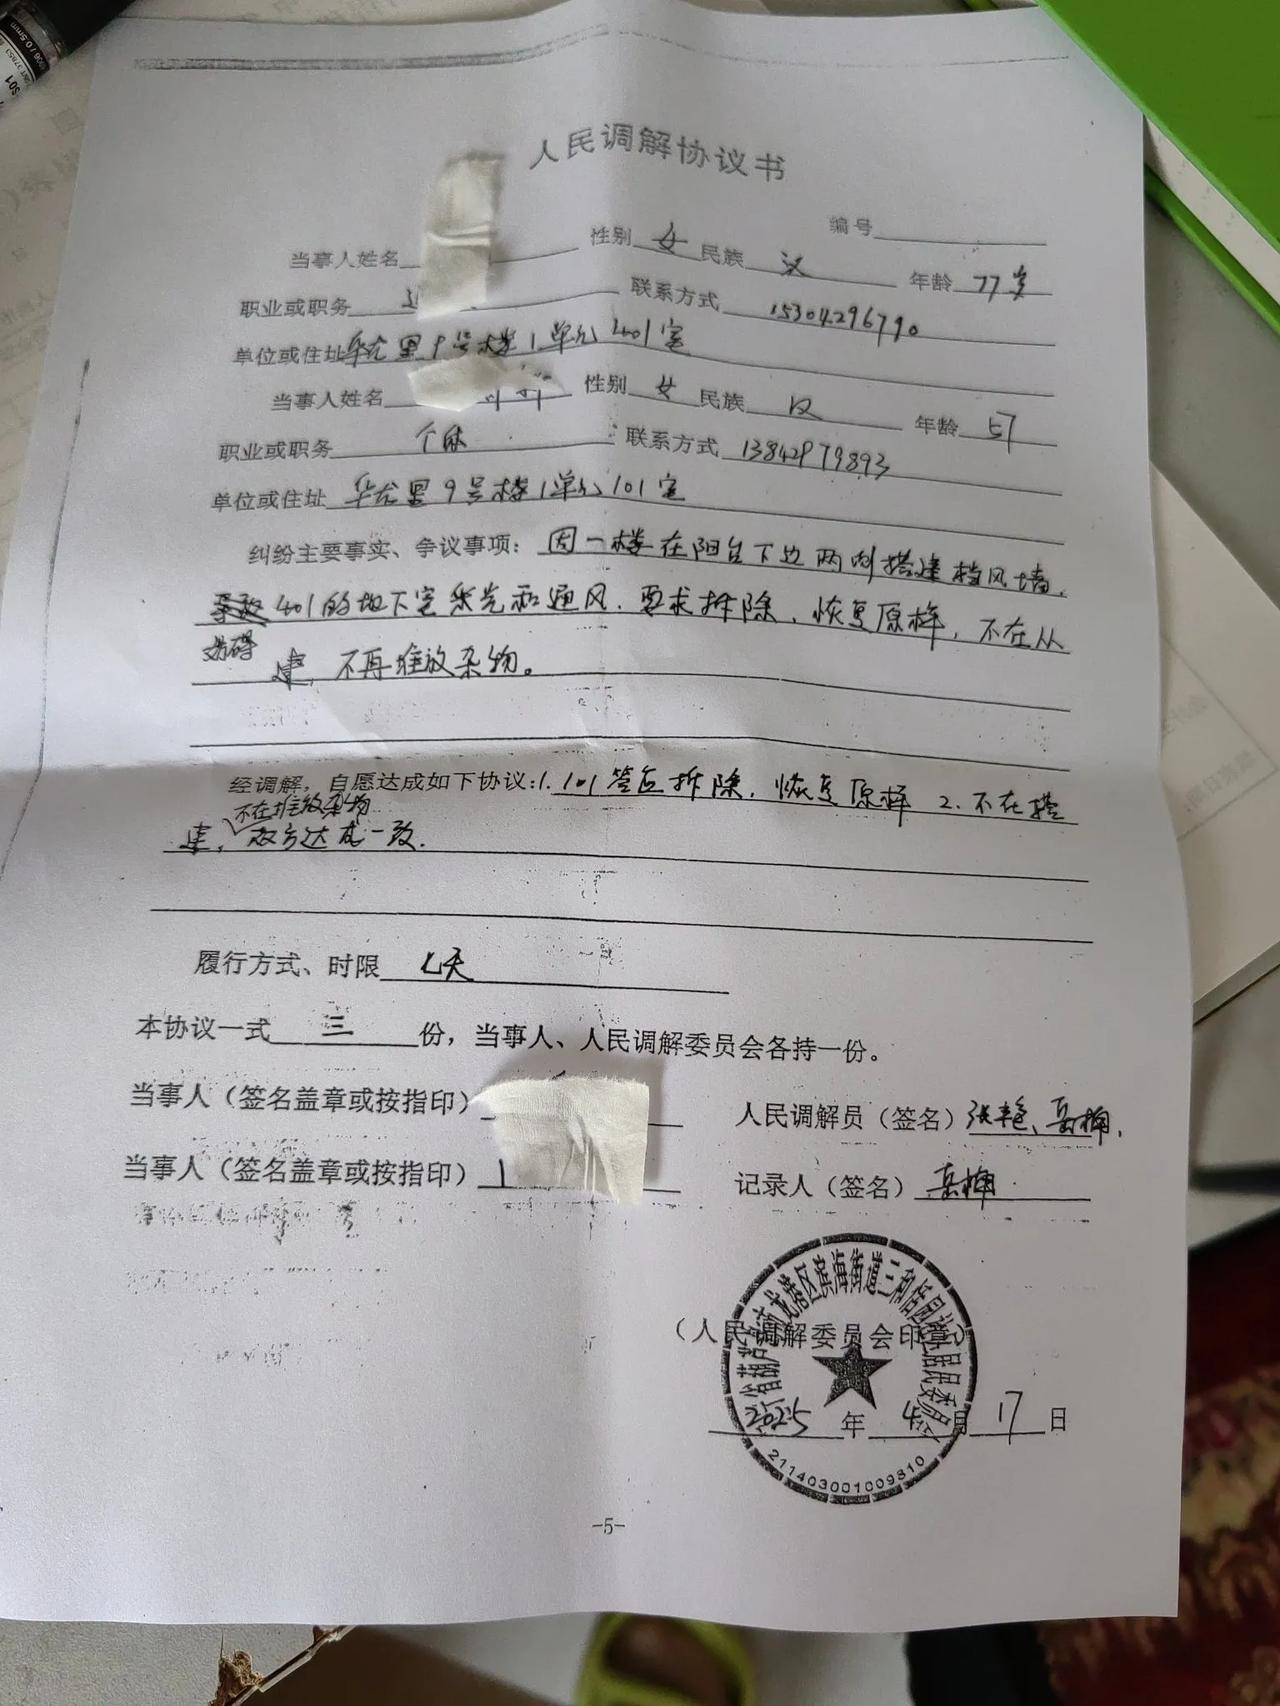 人民调解协议书
编号
当事人姓名 性别 女 民族 汉 年龄 77岁
职业或职务 联系方式 15304296790
单位或住址 华龙里9号楼1单元401室
当事人姓名 性别 女 民族 汉 年龄 57
职业或职务 个体 联系方式 13842979893
单位或住址 华龙里9号楼1单元101室
纠纷主要事实、争议事项：因一楼在阳台下边两侧搭建挡风墙，
妨碍401的地下室采光和通风，要求拆除，恢复原样，不在从
建，不再堆放杂物。
经调解，自愿达成如下协议：1. 101签后拆除，恢复原样 2.不在搭
建，不在堆放杂物 双方达成一致.
履行方式、时限 七天
本协议一式 三 份，当事人、人民调解委员会各持一份。
当事人（签名盖章或按指印） 人民调解员（签名）张艳、岳梅，
当事人（签名盖章或按指印） 记录人（签名）岳梅
龙港区滨海街道三和佳园社区居民委员会
（人民调解委员会印）
2025年4月17日
211403001009810
-5-